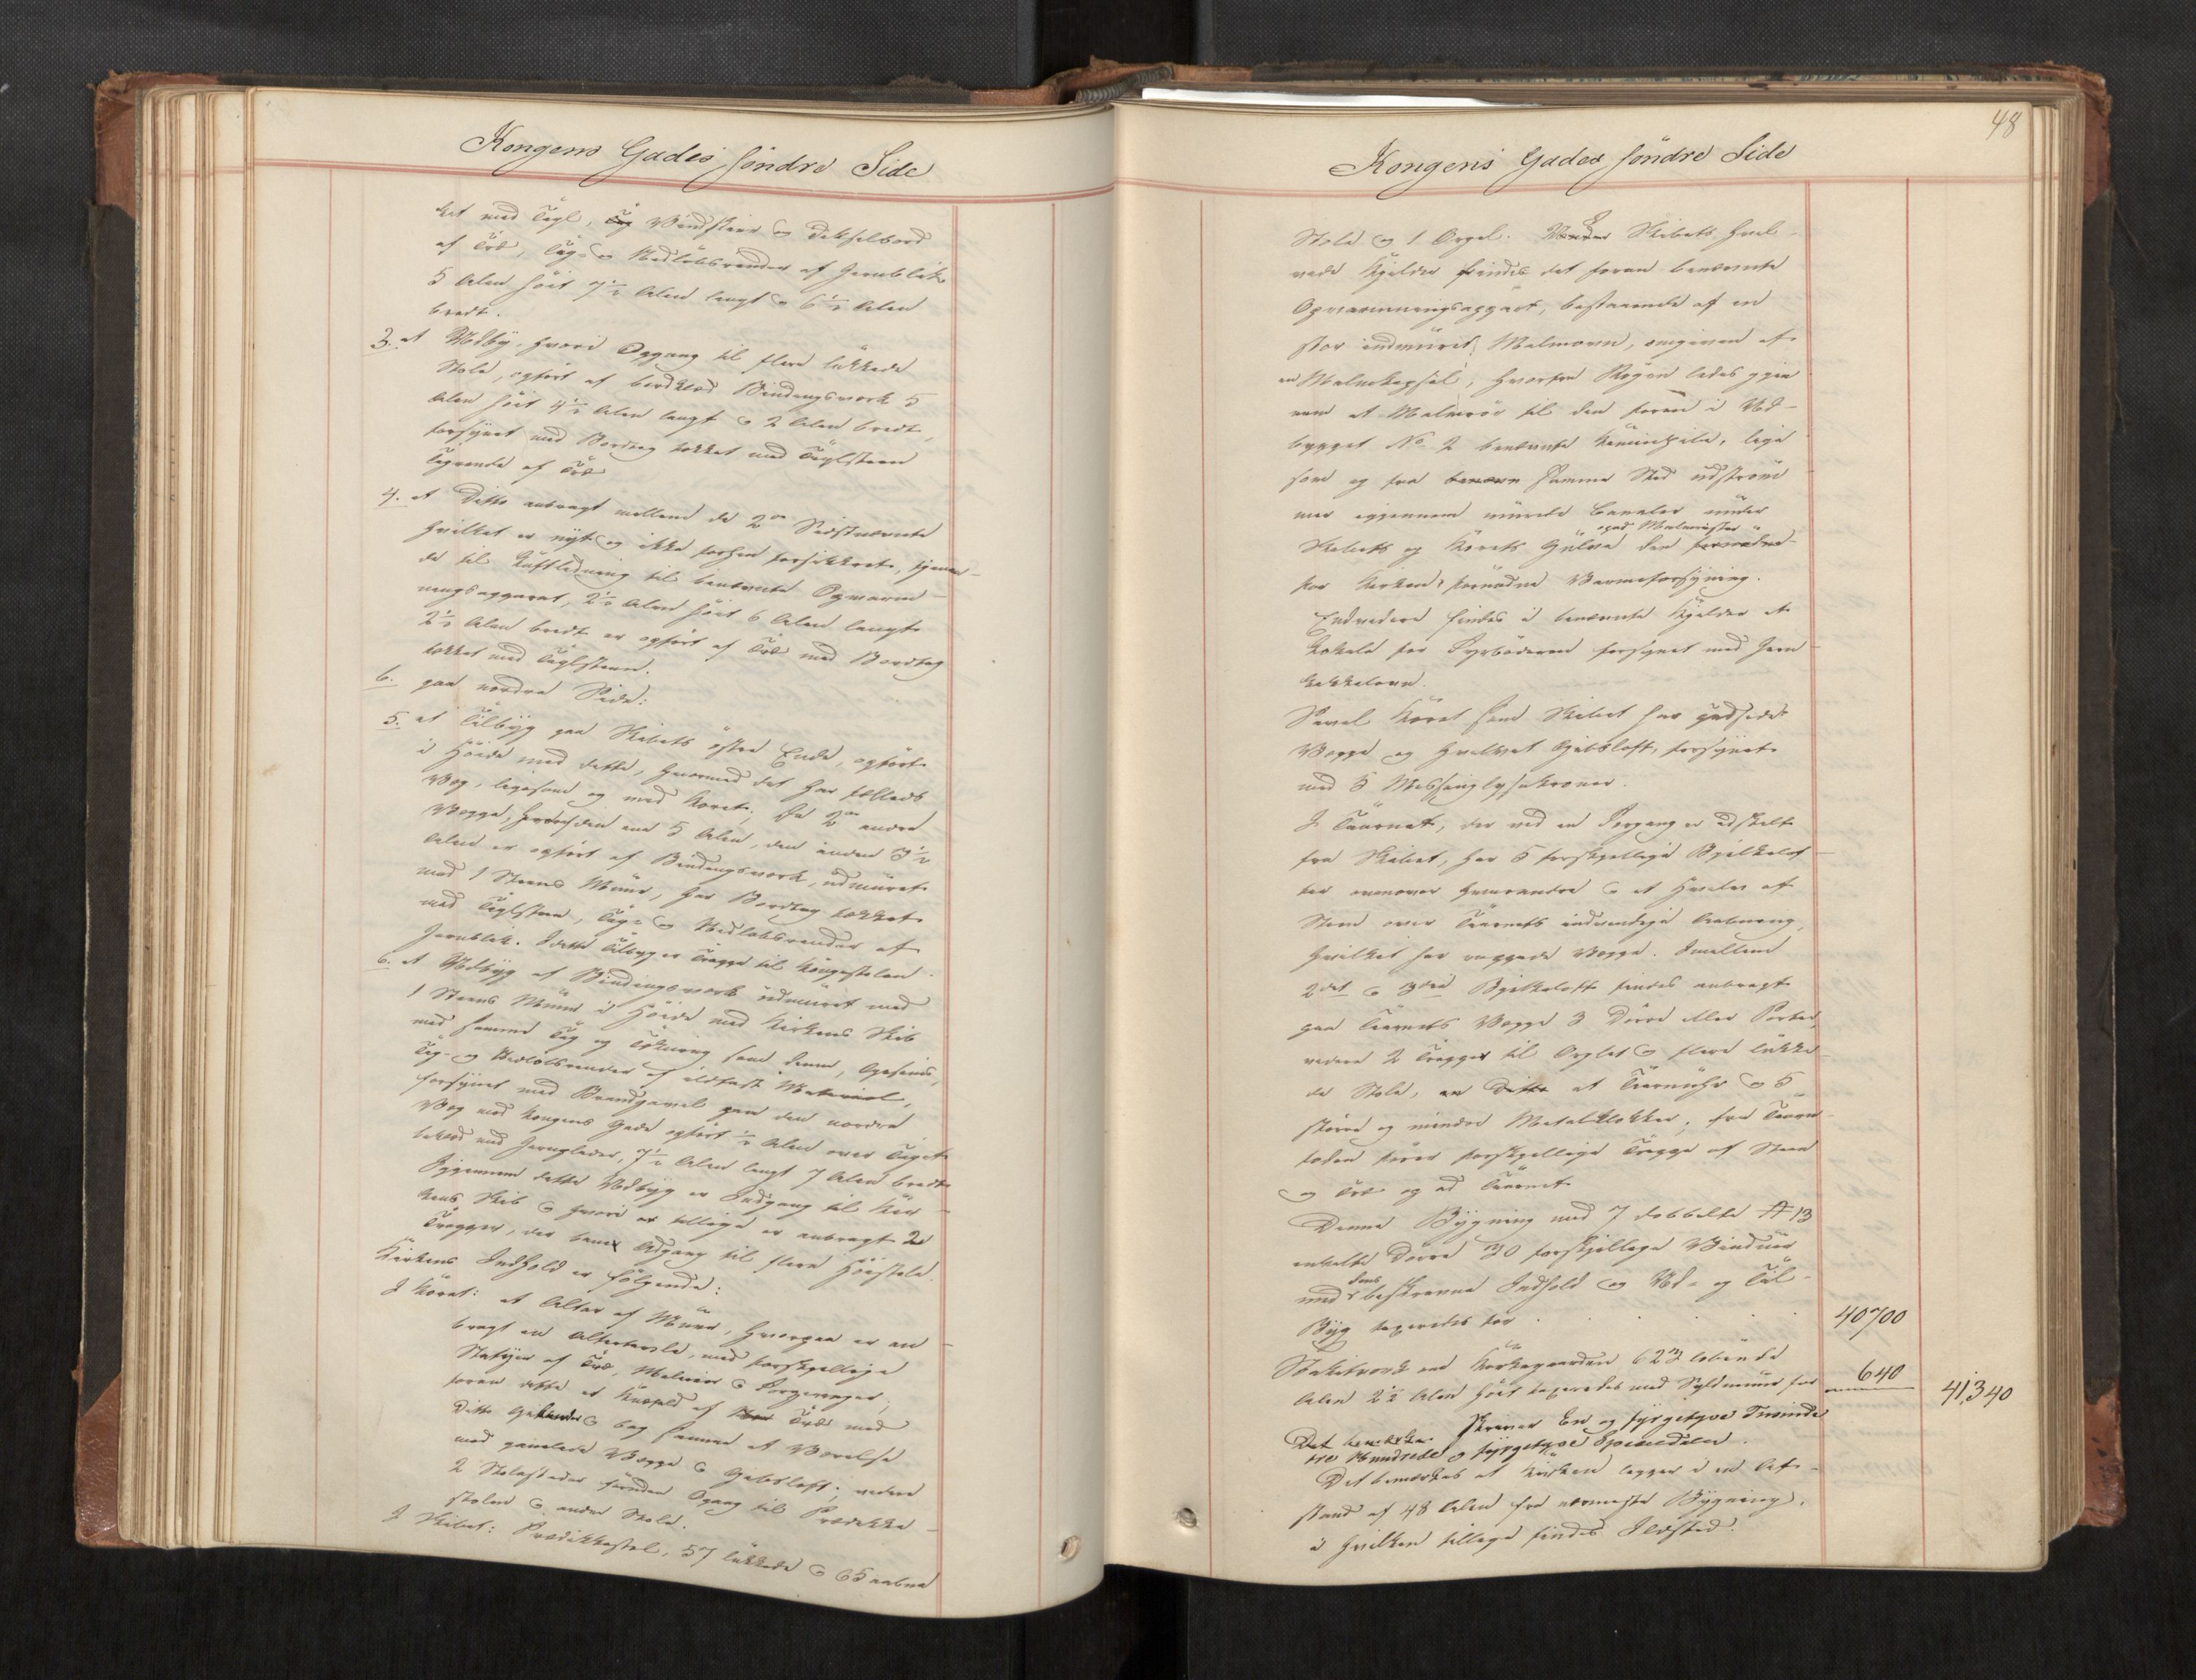 Kongens Gades söndre Side
ket med Tagl, Tag Vindskeer og Dækselbord
af Træ, Tag- og Nedløbsrender af Jernblik
5 Alen höit 7½ Alen langt og 6½ Alen
bredt.
3. et Udbyg, hvori Opgang til flere lukkede
Stole, opført af bordklæd Bindingsverk 5
Alen höit 4½ Alen langt og 2 Alen bredt,
forsynet med Bordtag tækket med Taglsteen
Tagrende af Træ
4. et Ditto anbragt mellem de 2de Sidstnævnte
hvilket er nyt og ikke forhen forsikkret, tjenen-
de til Luftledning til benævnte Opvarm-
ningsapparat, 2½ Alen höit 6 Alen langt
2½ Alen bredt er opført af Træ med Bordtag
tækket med Taglsteen.
b. paa nordre Side:
5. et Tilbyg paa Skibets østre Ende, opført
i Höide med dette, hvormed det har fælleds
Væg, ligesom og med Koret; De 2de andre
Vægge, hvoraf den ene 5 Alen, den anden 3½
Alen er opført af Bindingsverk, udmuret
med 1 Steens Muur, har Bordtag tækket
med Taglsteen, Tag- og Nedløbsrender af
Jernblik. I dette Tilbyg er Trappe til Kongestolen.
6. et Udbyg af Bindingsverk udmuret med
1 Steens Muur i Höide med Kirkens Skib
med samme Tag og Tækning som denne, Gesims,
Tag- og Nedløbsrender af ildfast Materiale,
forsynet med Brandgavel paa den nordre
Væg mod Kongens Gade opført ½ Alen over Taget
beklæd med Jernplader, 7½ Alen langt 7 Alen bredt
Igjennem dette Udbyg er Indgang til Kir-
kens Skib og hvori er tillige er anbragt 2de
Trapper, der bane Adgang til flere Höiestole.
Kirkens Indhold er følgende:
I Koret: et Alter af Muur, hvorpaa er an-
bragt en Altertavle, med forskjellige
Statuer af Træ, Malerier og Forgyldninger,
foran dette et Knæfald af Træ med
Ditto Gelænder og bag samme et Værelse
med panelede Vægge og Gibsloft; videre
2 Stolestader foruden Opgang til Prædike-
stolen og andre Stole.
I Skibet: Prædikkestol, 57 lukkede og 65 aabne
48
Kongens Gades söndre Side
Stole og 1 Orgel. Under Skibets hvel-
vede Kjelder findes det foran benævnte
Opvarmningsapparat, bestaaende af en
stor indmuret Malmovn, omgiven af
en Malmkapsel, hvorfra Røgen ledes gjen
nem et Malmrør til den foran i Ud-
bygget No 2 benævnte Kaminpibe, lige
som og fra samme Sted udström
mer igjennem murede Canaler under
Skibets og Korets Gulve den
opad Malmrister
for Kirken fornødne Varmeforsyning.
Endvidere findes i benævnte Kjelder et
Lokale for Fyrbøderen forsynet med Jern
kakkelovn.
Saavel Koret som Skibet har pudsede
Vægge og hvelvet Gibsloft, forsynet
med 5 Messinglysekroner.
I Taarnet, der ved en Forgang er adskilt
fra Skibet, har 5 forskjellige Bjelkelof
ter ovenover hverandre og et Hvælv af
Steen over Taarnets indvendige Aabning,
hvilket har rappede Vægge. Imellem
2det og 3die Bjelkeloft findes anbragt
paa Taarnets Vægge 3 Dørre eller Porter,
videre 2 Trapper til Orglet og flere lukke
de Stole, en Ditto et Taarnuhr og 5
større og mindre Metalklokker; fra Taarn-
foden fører forskjellige Trappe af Steen
og Træ op ad Taarnet
Denne Bygning med 7 dobbelte & 13
enkelte Dørre 30 forskjellige Vinduer
med dens beskrevne Indhold og Ud- og Til-
Byg taxeredes for . . . . . 40700
Stakitverk om Kirkegaarden 623 løbende
Alen 2½ Alen höit taxeredes med Syldmuur for 640 41,340
Skriver En og fyrgetyve Tusinde
tre Hundrede og fyrgetyve Speciedaler.
Det bemærkes at Kirken ligger i en Af-
stand af 48 Alen fra nærmeste Bygning,
i hvilken tillige findes Ildsted.